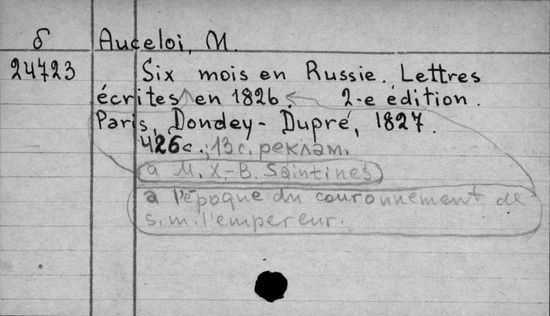 δ Auceloi, M.
24723 Six mois en Russie. Lettres
écrites en 1826. 2-e édition.
Paris, Dondey-Dupré, 1827.
426c.; 13 с. реклам.
a M. X.-B. Saintines
a l'époque du couronnement de
s. m. l'empereur.